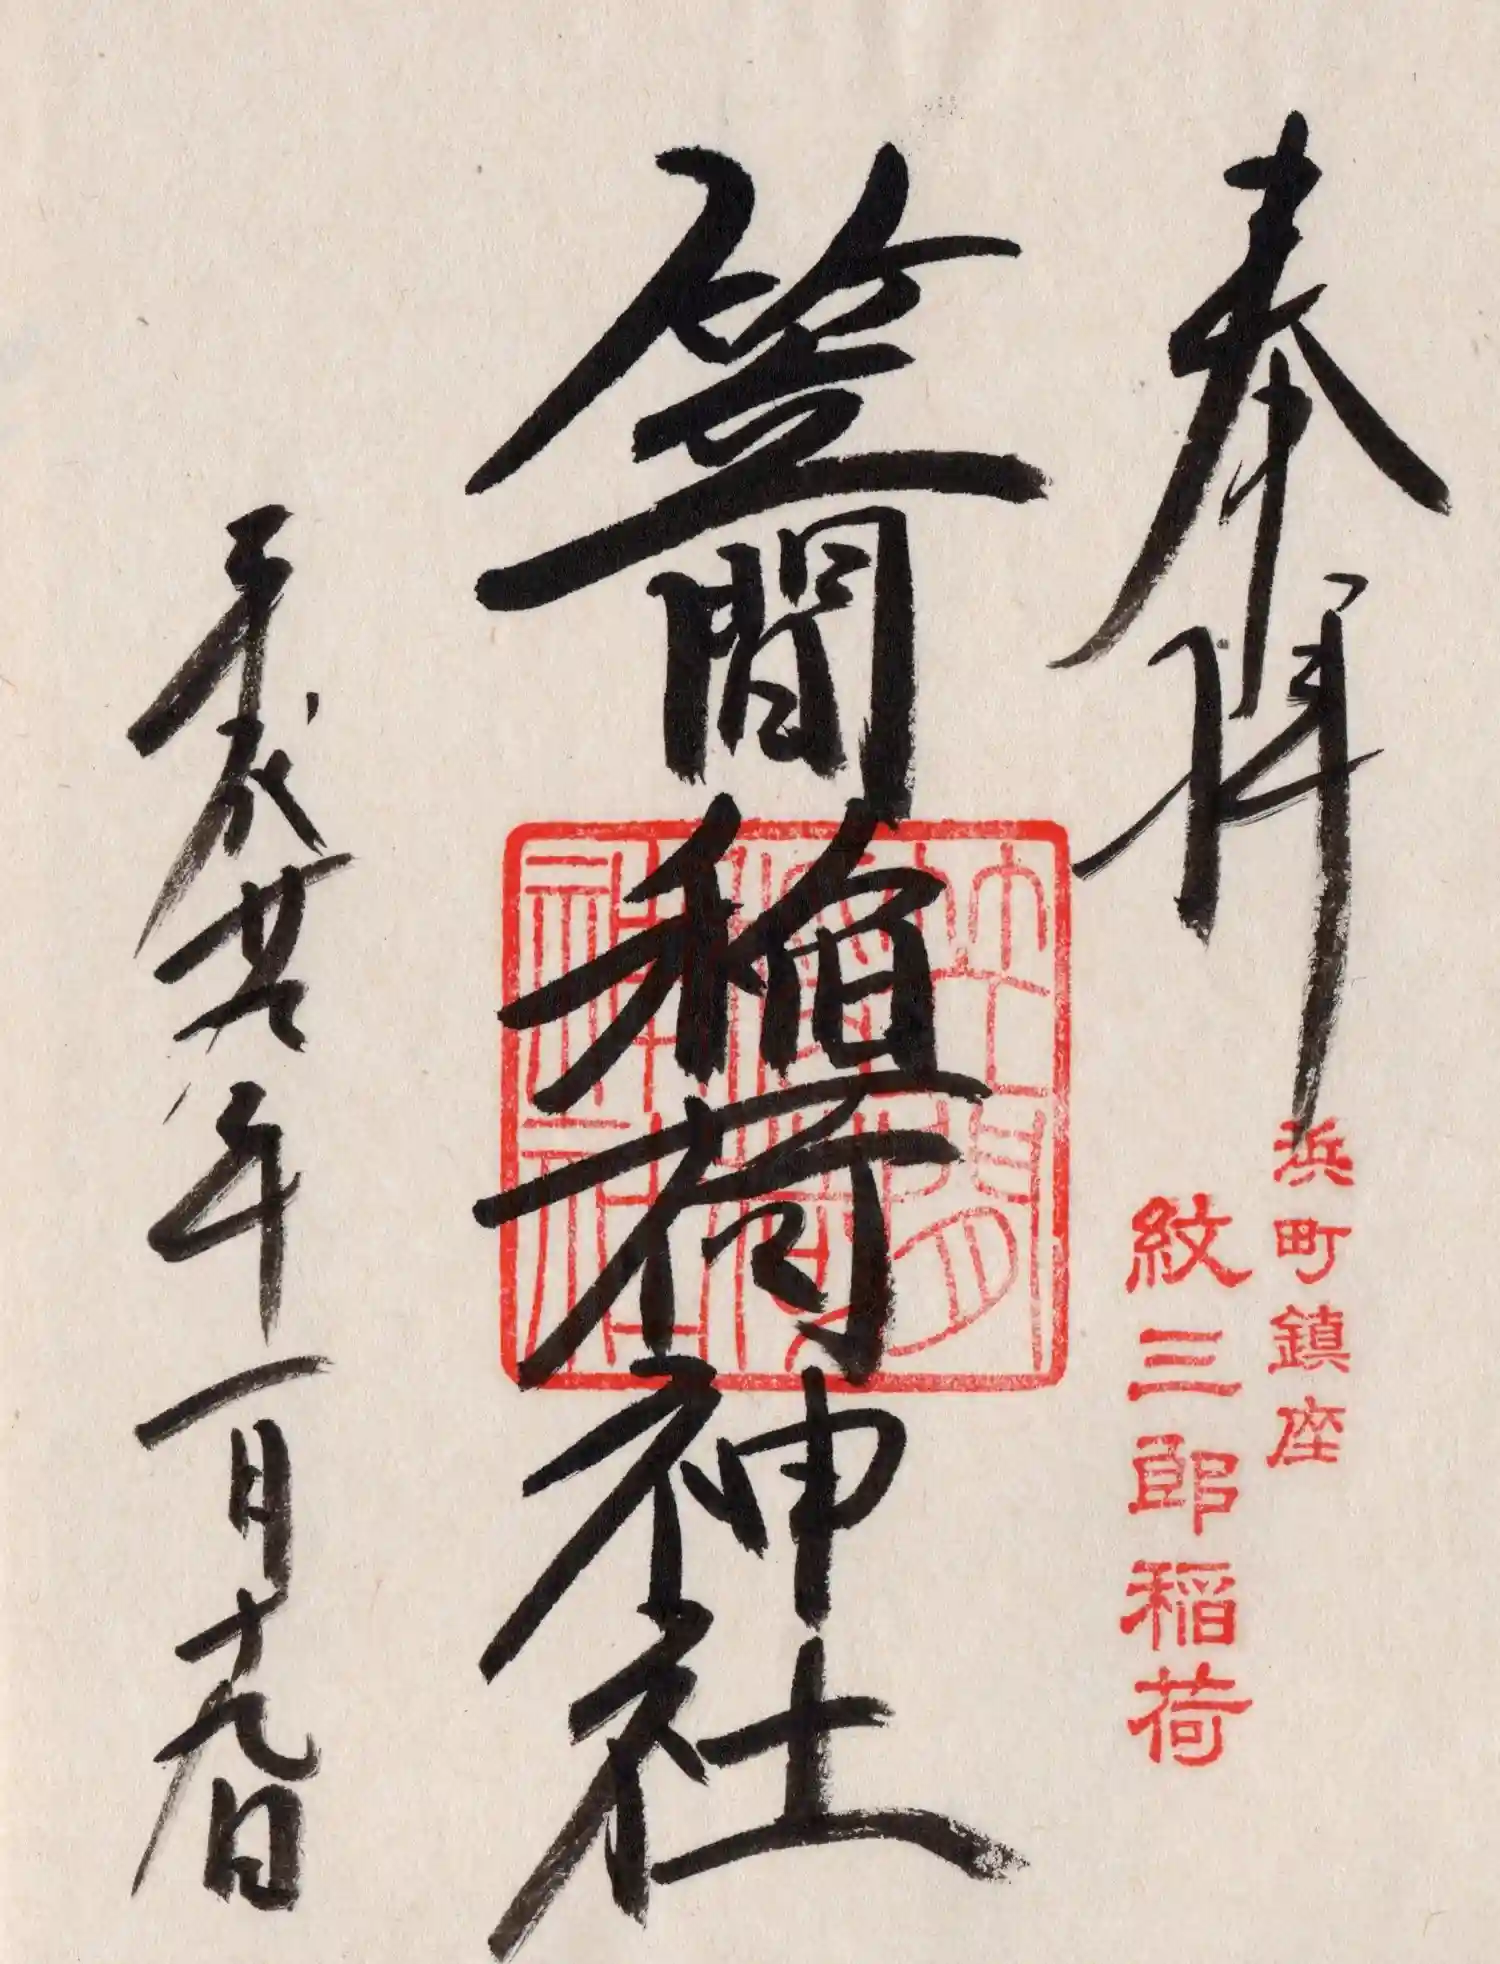 奉拝
浜町鎮座
紋三郎稲荷
笠間稲荷神社
笠間
稲荷
神社
平成廿六年一月十九日